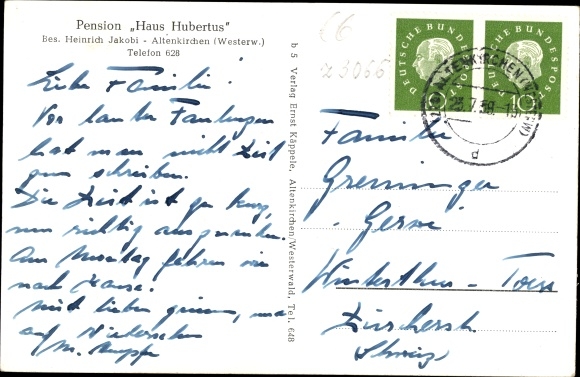 Pension „Haus Hubertus"
Bes. Heinrich Jakobi - Altenkirchen (Westerw.)
Telefon 628
Liebe Familie!
Vor lauter
hat man nicht Zeit
zum schreiben.
Die Zeit ist zu kurz,
um richtig
Am Montag fahren wir
nach Hause.
mit lieben und
auf Wiedersehen
M.
b 5 Verlag Ernst Käppele, Altenkirchen/Westerwald, Tel. 648
66
Z 3066
DEUTSCHE BUNDESPOST
10
DEUTSCHE BUNDESPOST
10
ALTENKIRCHEN (WESTERW)
28.7.59
d
Familie
Greminger
Winterthur - Töss
Zürcherstr.
Schweiz